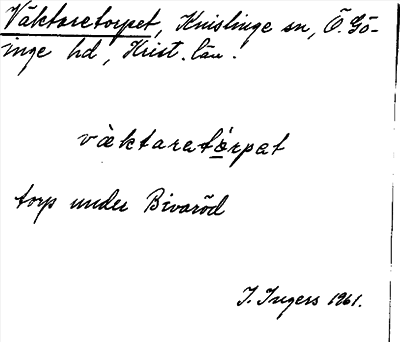 Väktaretorpet, Knislinge sn, Ö. Gö-
inge hd, Krist. län.
vàktaretó̱rpat
torp under Bivaröd
I. Ingers 1961.